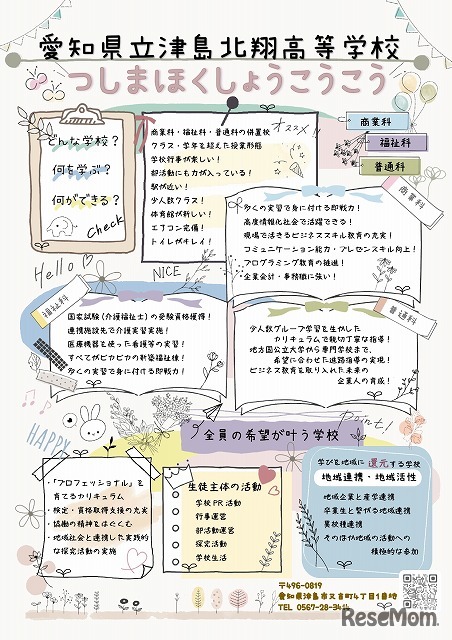 愛知県立津島北翔高等学校
つしまほくしょうこうこう
どんな学校？
何を学ぶ？
何ができる？
Check
商業科・福祉科・普通科の併置校
クラス・学年を超えた授業形態
学校行事が楽しい！
部活動にも力が入っている！
駅が近い！
少人数クラス！
体育館が新しい！
エアコン完備！
トイレがキレイ！
オススメ!!
商業科
福祉科
普通科
Hello
NICE
商業科
多くの実習で身に付ける即戦力！
高度情報化社会で活躍できる！
現場で活きるビジネススキル教育の充実！
コミュニケーション能力・プレゼンスキル向上！
プログラミング教育の推進！
企業会計・事務職に強い！
福祉科
国家試験(介護福祉士)の受験資格獲得！
連携施設先で介護実習実施！
医療機器を使った看護等の実習！
すべてがピカピカの新築福祉棟！
多くの実習で身に付ける即戦力！
普通科
少人数グループ学習を生かした
カリキュラムで親切丁寧な指導！
地方国公立大学から専門学校まで、
希望に合わせた進路指導の実現！
ビジネス教育を取り入れた未来の
企業人の育成！
Point!
HAPPY
全員の希望が叶う学校
・「プロフェッショナル」を
育てるカリキュラム
・検定・資格取得支援の充実
・協働の精神をはぐくむ
・地域社会と連携した実践的
な探究活動の実施
生徒主体の活動
学校PR活動
行事運営
部活動運営
探究活動
学校生活
学びを地域に還元する学校
地域連携・地域活性
地域企業と産学連携
卒業生と繋がる地域連携
異校種連携
そのほか地域の活動への
積極的な参加
〒496-0819
愛知県津島市又吉町4丁目1番地
TEL 0567-28-34
ReseMom.